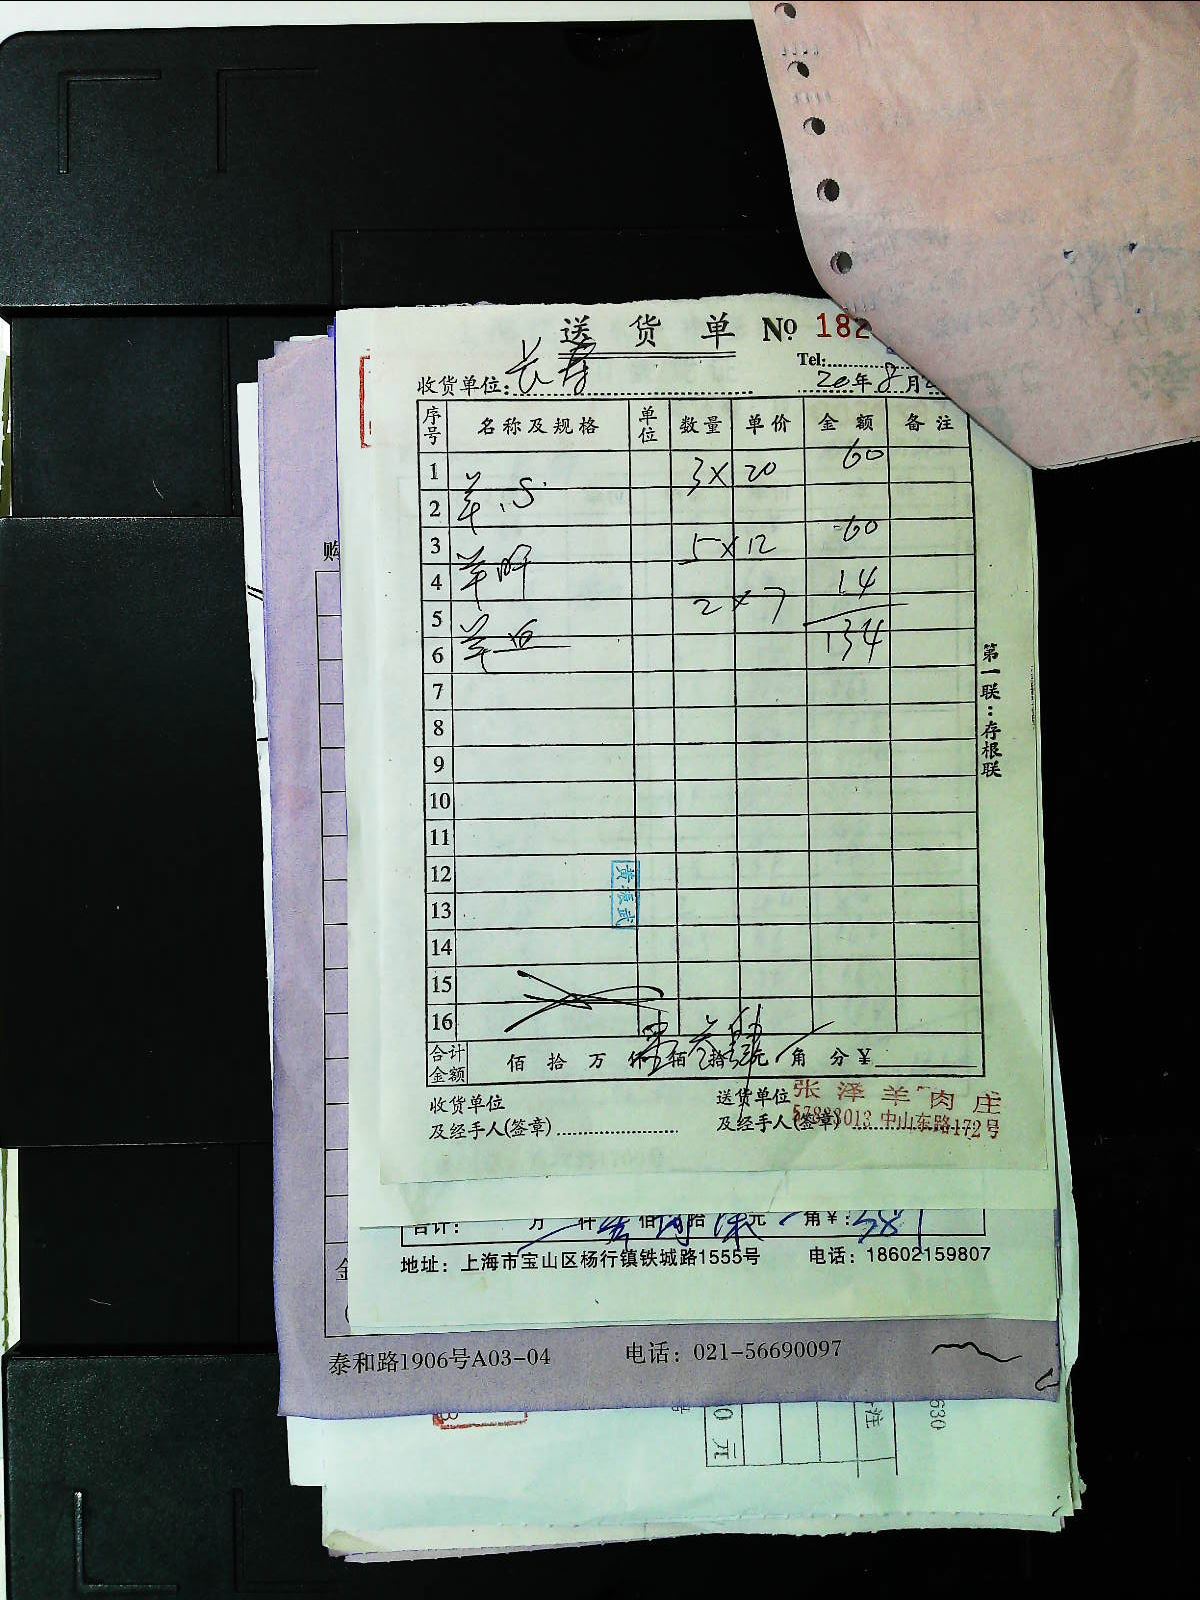 送货单 № 182
Tel:
收货单位: 长寿 20年8月2
序号 名称及规格 单位 数量 单价 金额 备注
1 3× 20 60
2 羊心
3 5× 12 60
4 羊肝 14
5 2 × 7
6 羊血 134
7
8
9
10
11
12
13
14
15
16
合计金额 佰 拾 万 仟 壹佰 叁拾 肆元 角 分 ¥
收货单位 送货单位 张泽羊肉庄
及经手人(签章) 及经手人(签章) 57883013 中山东路172号
第一联:存根联
购
合计: 万 仟 佰 拾 元 角 ¥: 381
地址: 上海市宝山区杨行镇铁城路1555号 电话: 18602159807
金
泰和路1906号A03-04 电话: 021-56690097
0 元
注
630